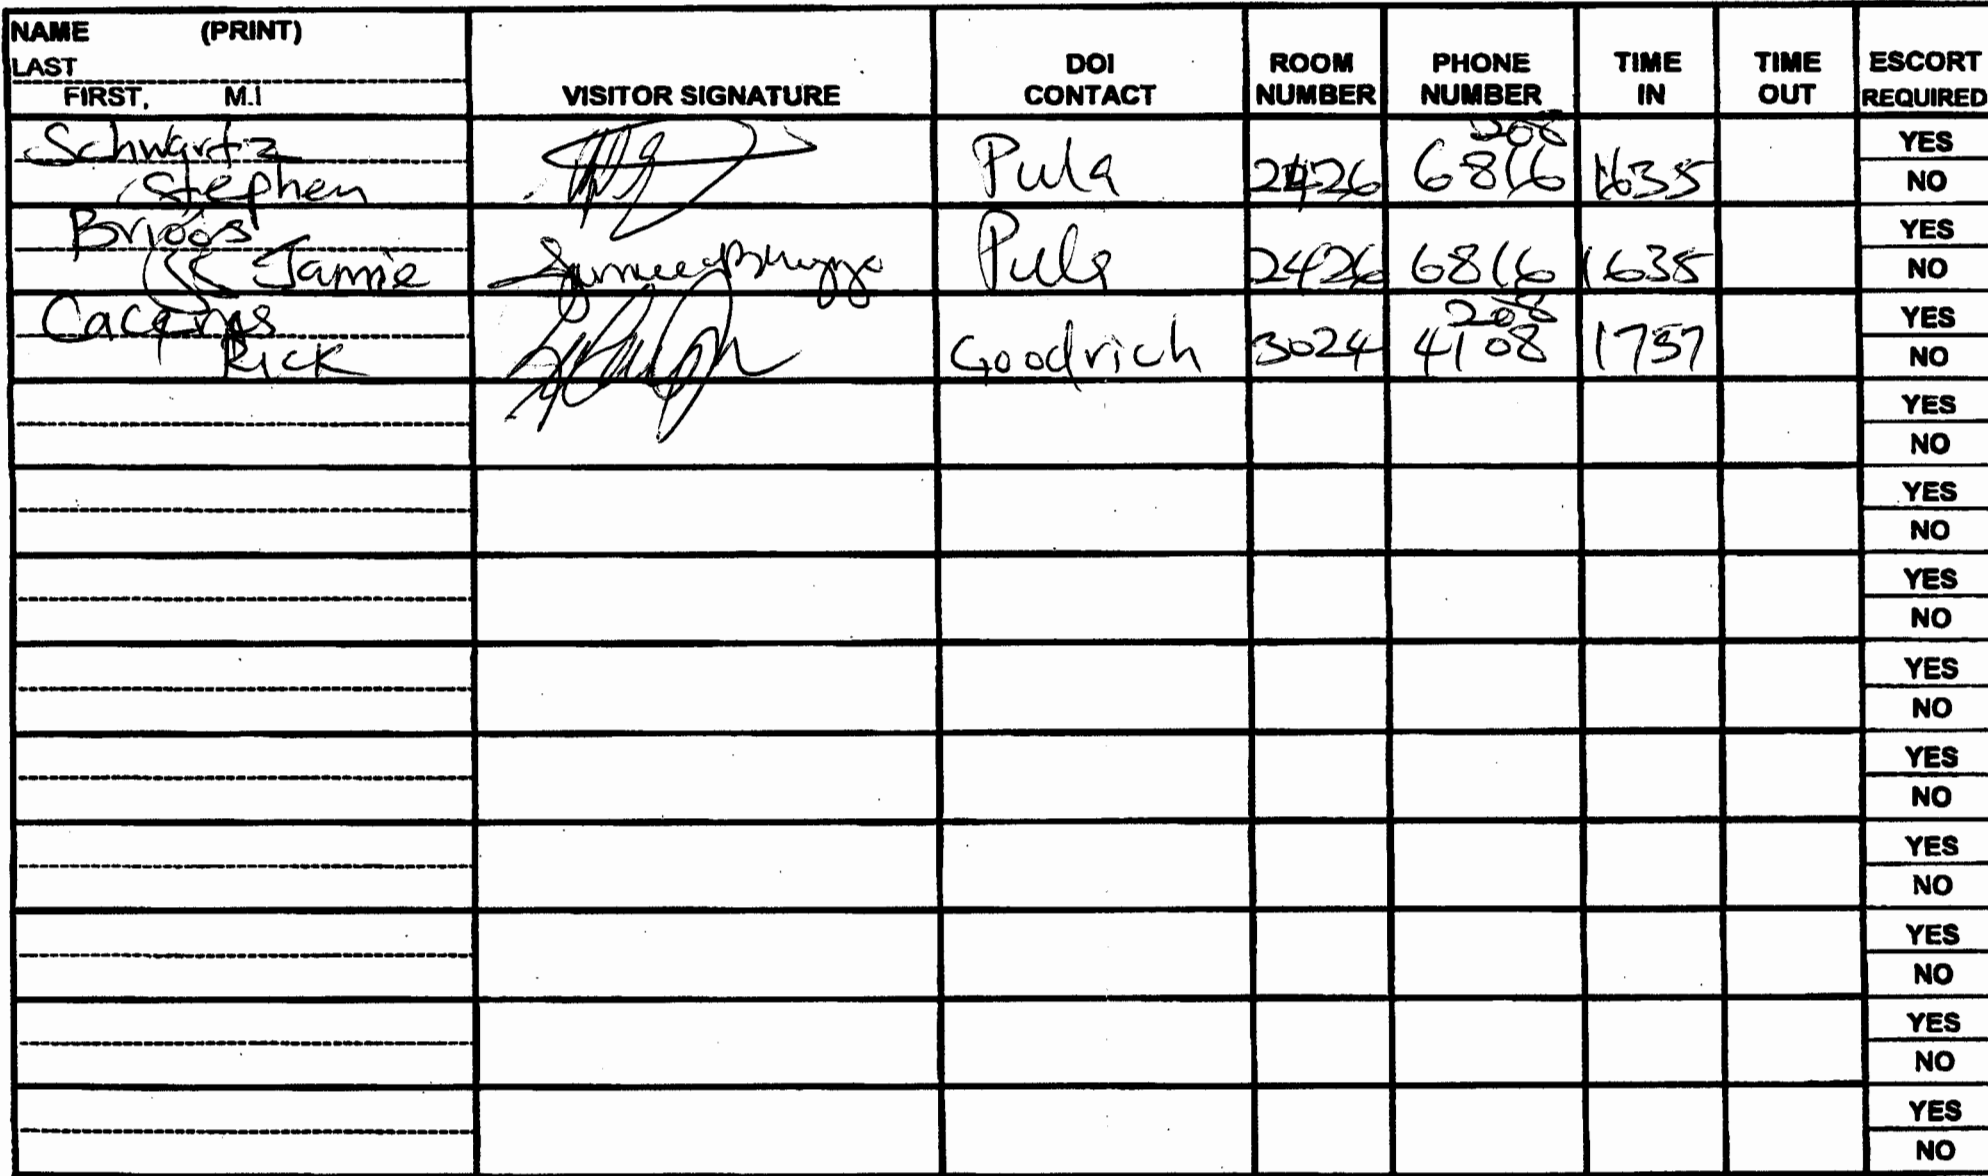 NAME (PRINT)
LAST
FIRST, M.I
VISITOR SIGNATURE
DOI
CONTACT
ROOM
NUMBER
PHONE
NUMBER
TIME
IN
TIME
OUT
ESCORT
REQUIRED
Schwartz
Stephen
Pula
2426
208
6816
1635
YES
NO
Briggs
Jamie
Pula
2426
6816
1635
YES
NO
Rick
Goodrich
3024
208
4108
1757
YES
NO
YES
NO
YES
NO
YES
NO
YES
NO
YES
NO
YES
NO
YES
NO
YES
NO
YES
NO